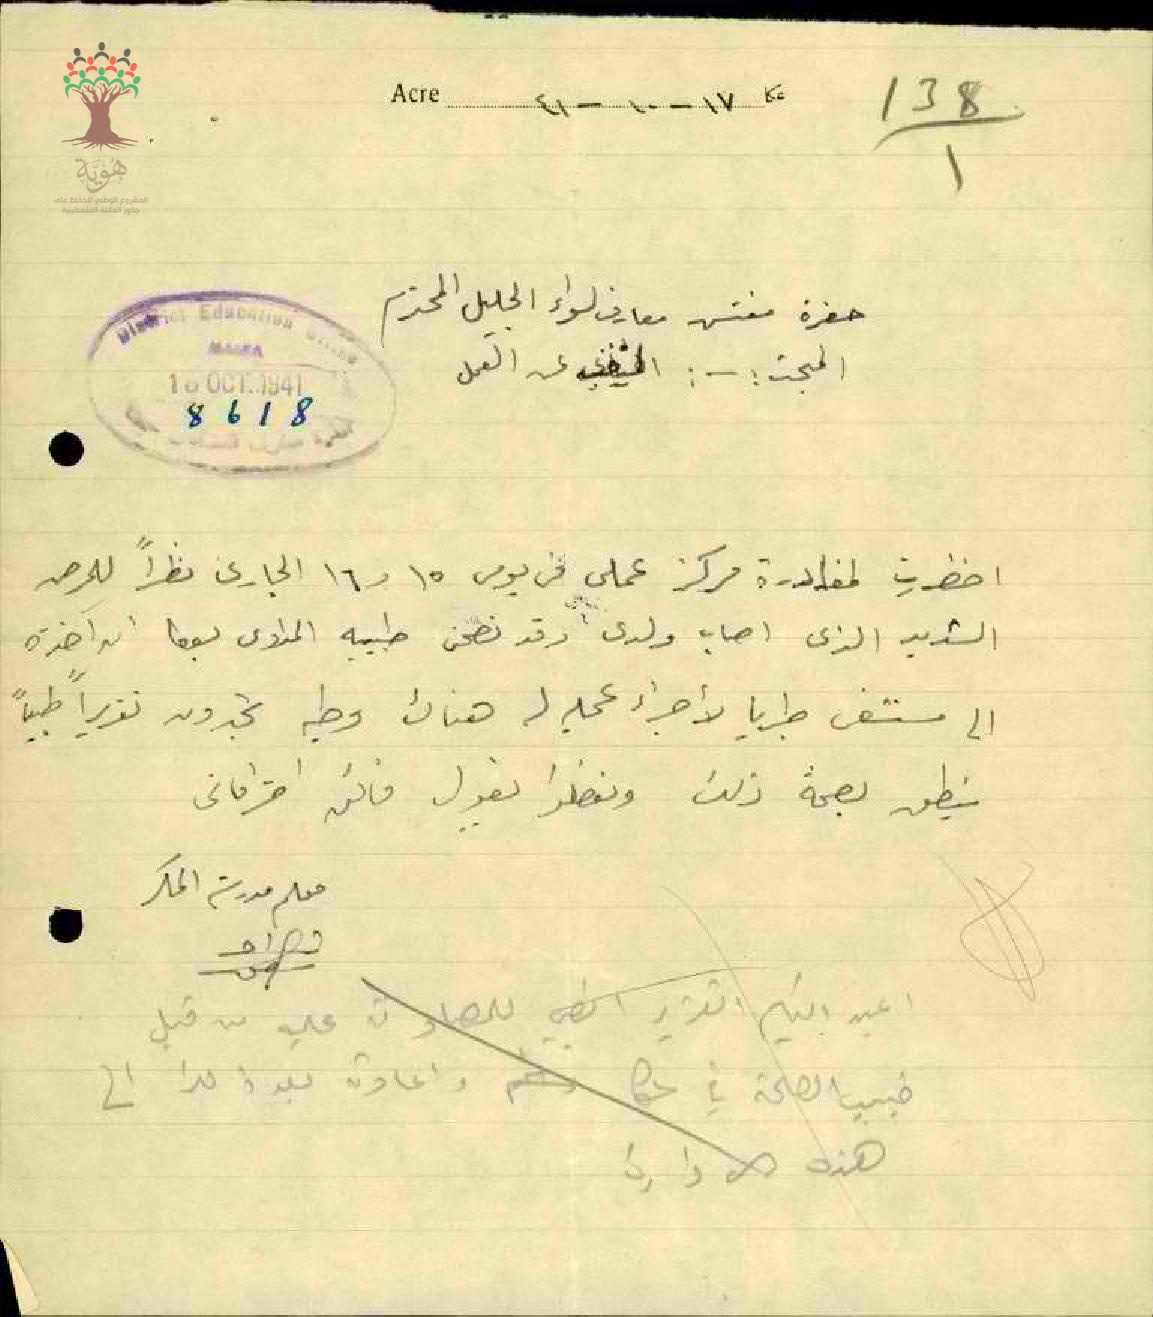 هُوِيَّة
المشروع الوطني للحفاظ على
جذور العائلة الفلسطينية
Acre ١٧ - ١٠ - ٤١ عكا
138
1
حضرة مفتش معارف لواء الجليل المحترم
المبحث :- التغيب عن العمل
District Education Office
HAIFA
18 OCT. 1941
8618
اضطررت لمغادرة مركز عملي في يومي ١٥ و ١٦ الجاري نظراً للمرض
الشديد الذي اصاب ولدي وقد نصحني طبيبه المداوي بعكا ان آخذه
الى مستشفى طبريا لأجراء عملية له هناك وطيه تجدون تقريراً طبياً
ينطق بصحة ذلك وتفضلوا بقبول فائق احتراماتي
معلم مدرسة المكر
اعيد اليكم التقرير الطبي للمصادقة عليه من قبل
طبيب الصحة في عكا واعادته بعد ذلك الى
هذه الادارة